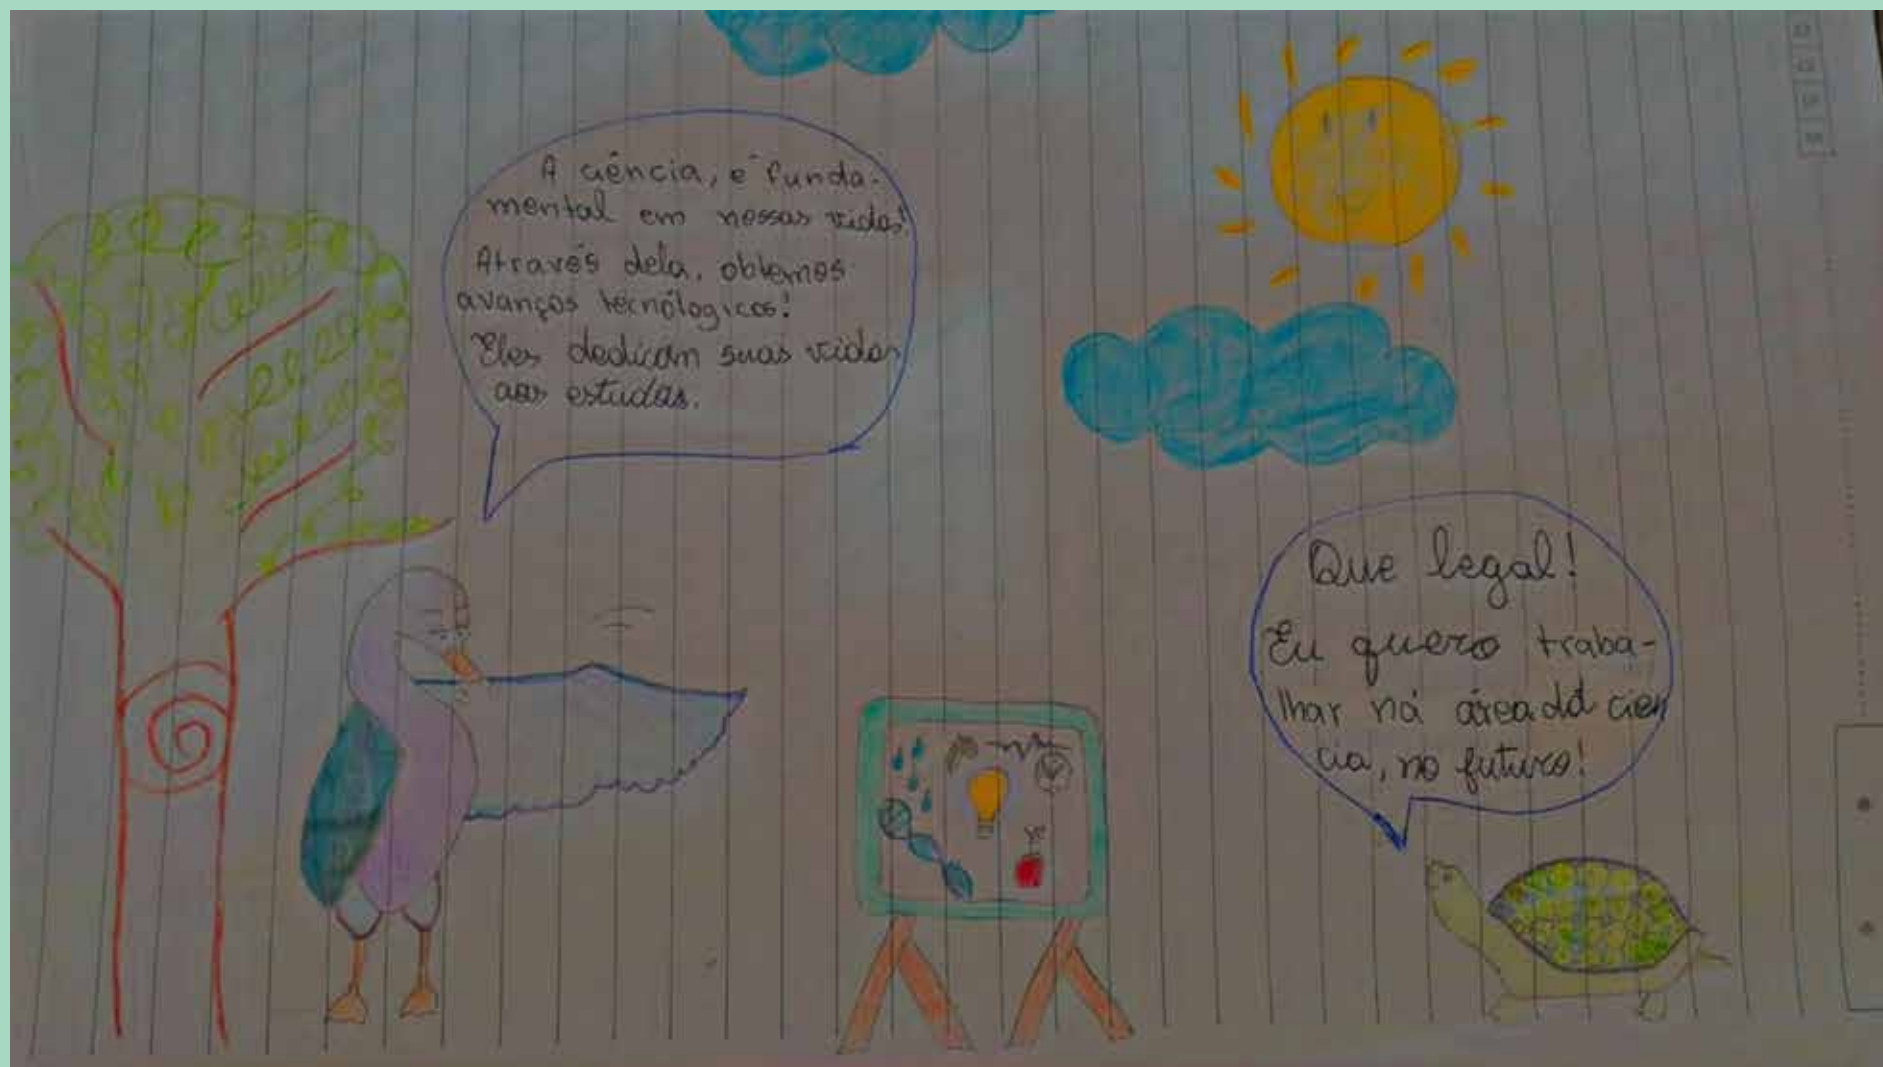 A ciência, é funda-
mental em nossas vidas!
Através dela, obtemos
avanços tecnólogicos!
Eles dedicam suas vidas
aos estudos.
Que legal!
Eu quero traba-
lhar ná área dá ciên
cia, no futuro!